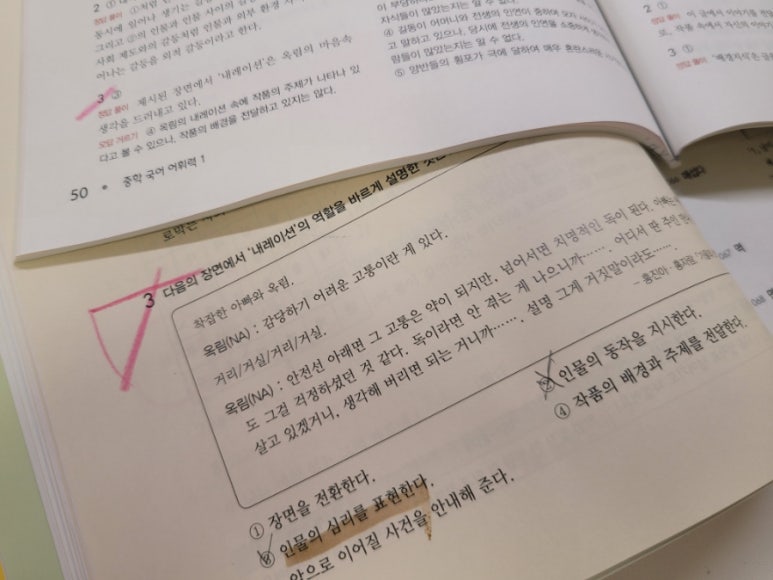 정답 풀이
동시에 일어나 생기는
그리고 ②의 인물과 인물 사이의
사회 제도와의 갈등처럼 인물과 외부 환경
어나는 갈등을 외적 갈등이라고 한다.
3 ③
정답 풀이 제시된 장면에서 '내레이션'은 옥림의 마음속
생각을 드러내고 있다.
오답 거르기 ④ 옥림의 내레이션 속에 작품의 주제가 나타나 있
다고 볼 수 있으나, 작품의 배경을 전달하고 있지는 않다.
50 • 중학 국어 어휘력 1
자식들이 많았는지는 알 수 없다.
④ 길동이 어머니와 전생의 인연이 중하여 모자
고 말하고 있으나, 당시에 전생의 인연을 소중하게
람들이 많았는지는 알 수 없다.
⑤ 양반들의 횡포가 극에 달하여 매우 혼란스러운
2 ①
정답 풀이 이 글에서 이야기를
로, 작품 속에서 자신의 이야기
3 ①
정답 풀이 '배경지식'은
3 다음의 장면에서 '내레이션'의 역할을 바르게 설명한 것은
착잡한 아빠와 옥림.
옥림(NA) : 감당하기 어려운 고통이란 게 있다.
거리/거실/거리/거실.
옥림(NA) : 안전선 아래면 그 고통은 약이 되지만, 넘어서면 치명적인 독이 된다. 아빠는
도 그걸 걱정하셨던 것 같다. 독이라면 안 겪는 게 나으니까…… 어디서 딴 주인
살고 있겠거니, 생각해 버리면 되는 거니까……, 설명 그게 거짓말이라도……
- 홍진아·홍자람
① 장면을 전환한다.
② 인물의 동작을 지시한다.
③ 인물의 심리를 표현한다.
④ 작품의 배경과 주제를 전달한다.
앞으로 이어질 사건을 안내해 준다.